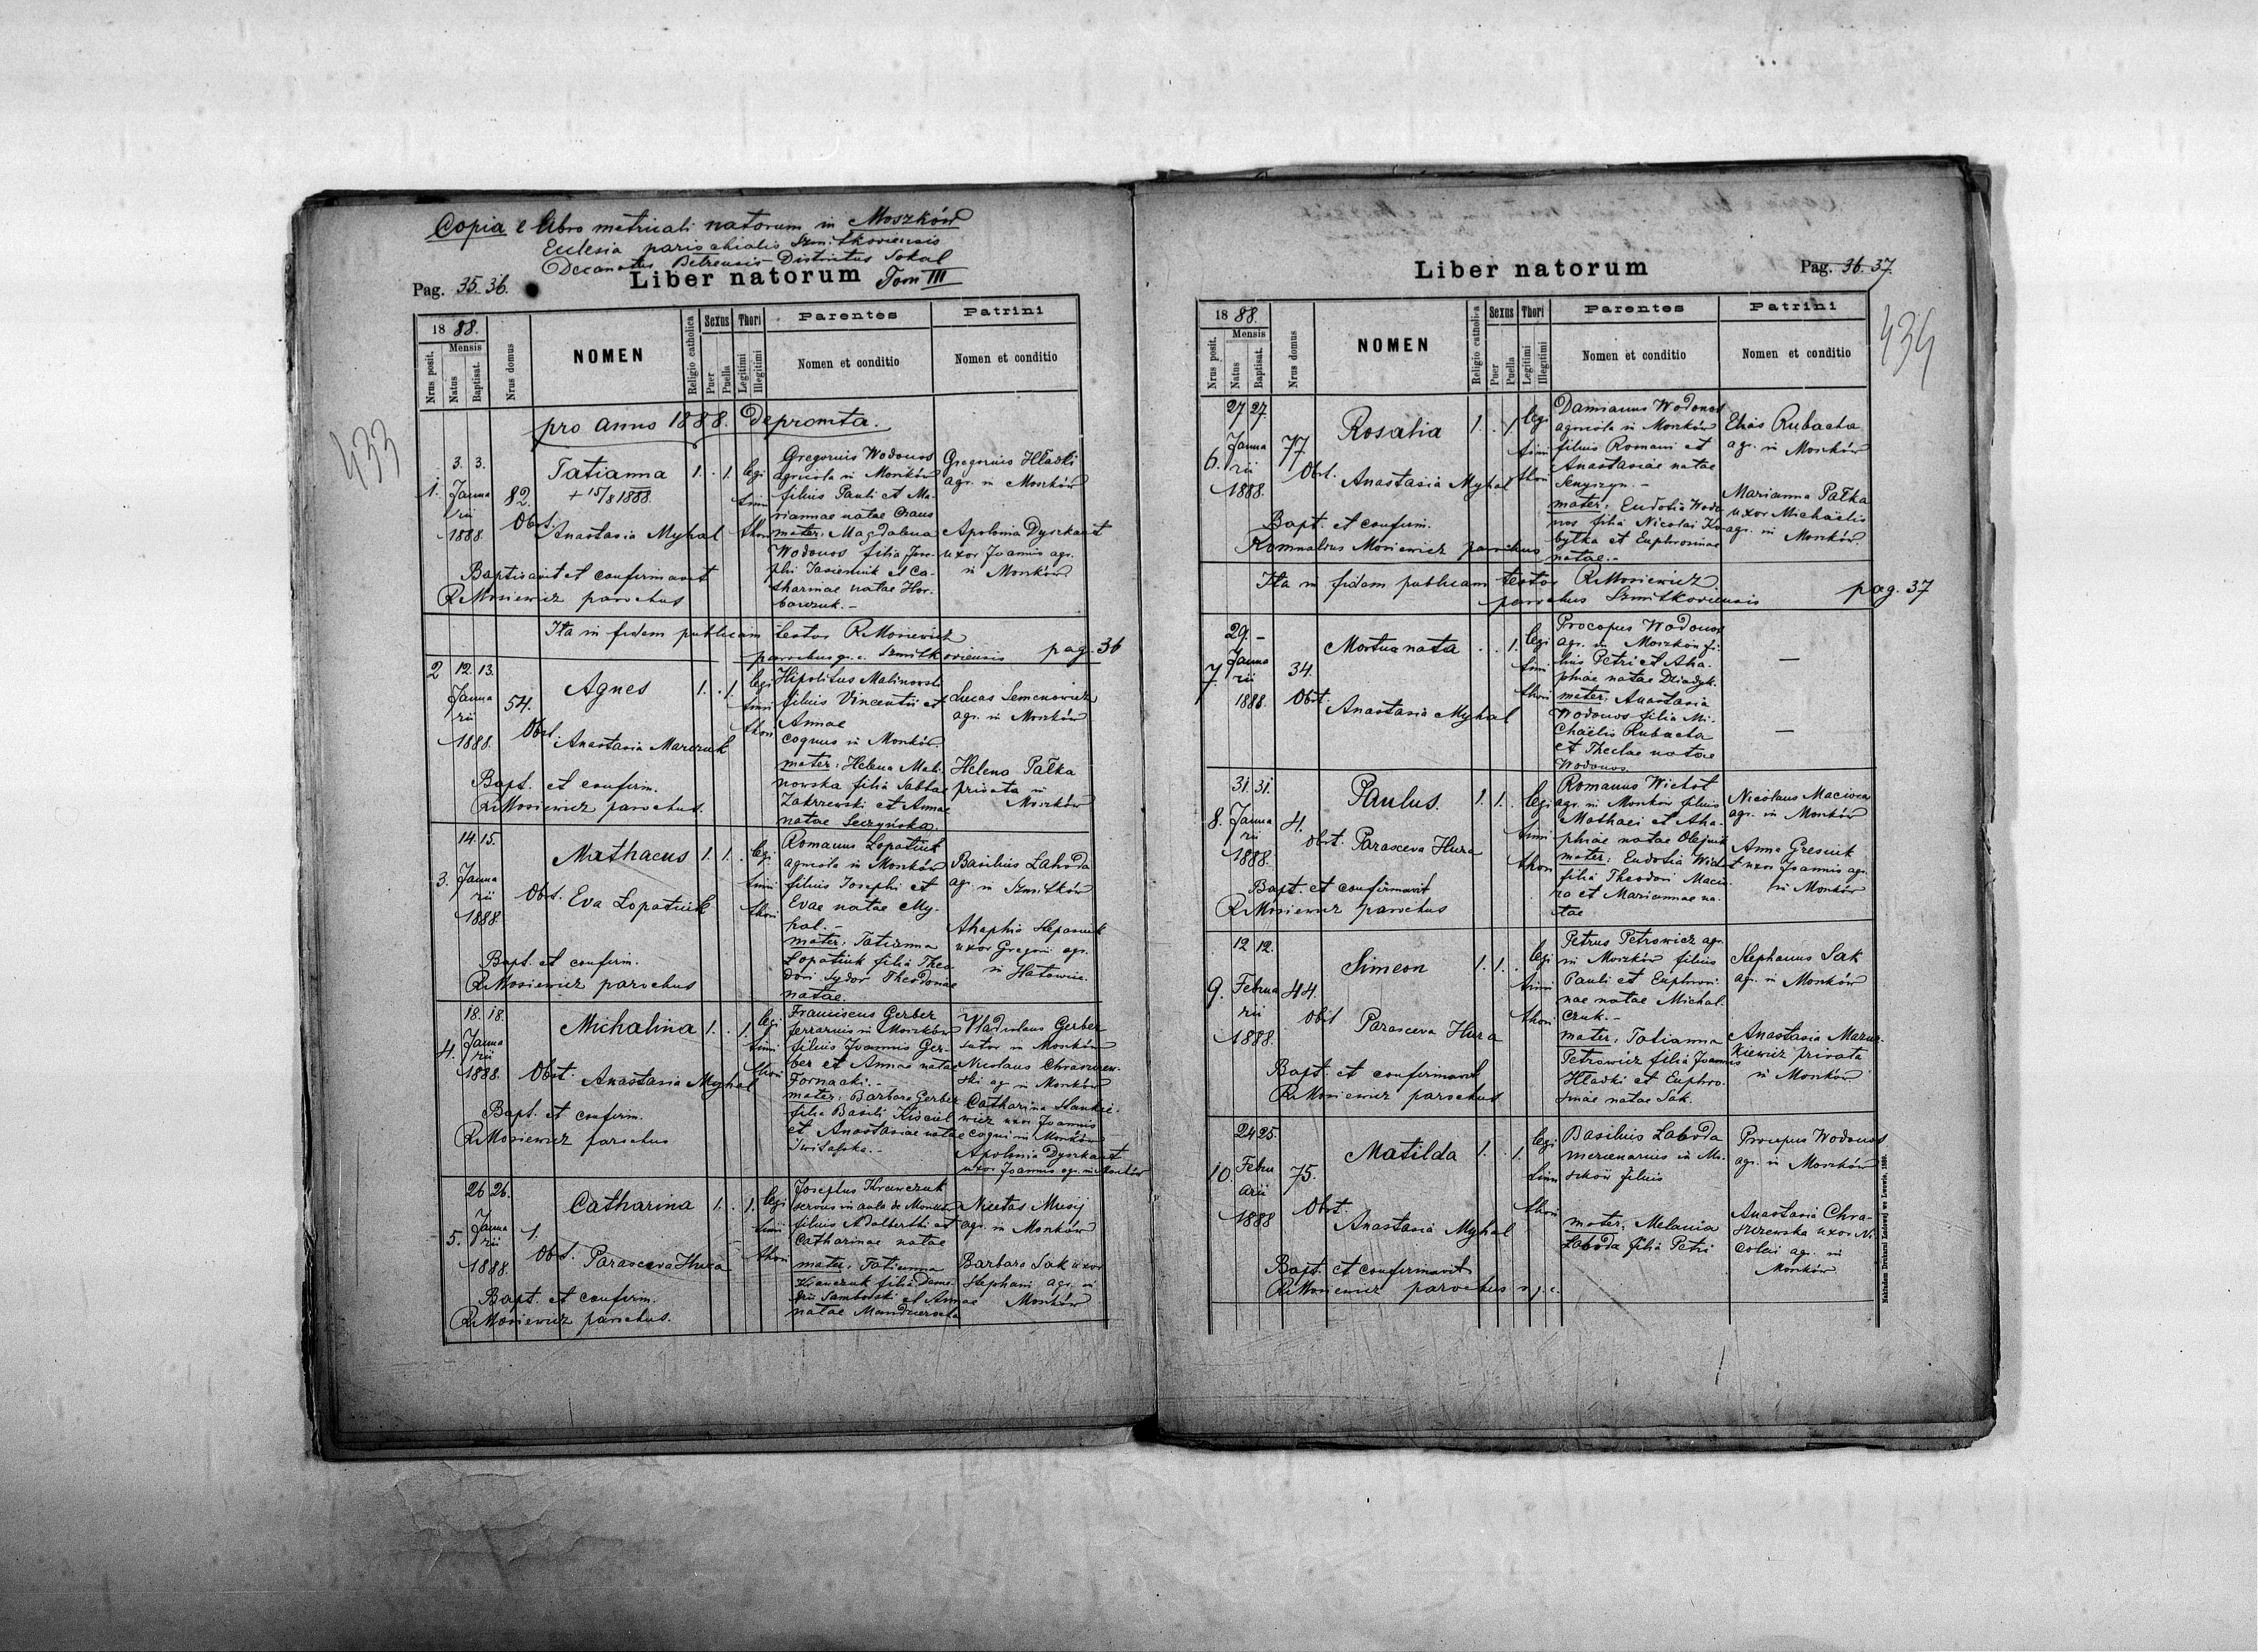 Copia e libro metricali natorum in Moszków
Eclesia parochialis Szmitkoviensis
Decanatus Belzensis Districtus Sokal
Pag. 35. 36.
Liber natorum Tom III
433
1888.
Nrus posit.
Mensis
Natus
Baptisat.
Nrus domus
NOMEN
Religio catholica
Sexus
Puer
Puella
Thori
Legitimi
Illegitimi
Parentes
Nomen et conditio
Patrini
Nomen et conditio
pro anno 1888. depromta.
1.
3. 3.
Janua
rii
1888.
82.
Tatianna
+ 15/8 1888.
Obst.
Anastasia Myhal
Baptisavit et confirmavit
R. Mosiewicz parochus
1. . 1.
legi
timi
thori
Gregorius Wodonos
agricola in Moszków
filius Pauli et Ma-
riannae natae Chaus
mater: Magdalena
Wodonos filia Jose-
phi Jasieniuk et Ca-
tharinae natae Hor-
barczuk. –
Gregorius Hładki
agr. in Moszków
Apolonia Dyszkant
uxor Joannis agr.
in Moszków
Ita in fidem publicam testor R. Mosiewicz
parochus g. c. Szmitkoviensis pag. 36
2
12. 13.
Janua
rii
1888.
54.
Agnes
Obst.
Anastasia Marczuk
Bapt. et confirm.
R. Mosiewicz parochus.
1. . 1.
legi
timi
thori
Hipolitus Malinowski
filius Vincentii et
Annae
coquus in Moszków.
mater: Helena Mali-
nowska filia Sabbae
Zakrzewski et Annae
natae Leczyńska.
Lucas Semenowicz
agr. in Moszków
Helena Pałka
privata in
Moszków
3.
14. 15.
Janua
rii
1888
Mathaeus
Obst. Eva Łopatiuk
Bapt. et confirm.
R. Mosiewicz parochus
1. 1. .
legi
timi
thori
Romanus Łopatiuk
agricola in Moszków
filius Josephi et
Evae natae My-
hal. –
mater: Tatianna
Łopatiuk filia Theo-
dori Sydor Theodonae
natae.
Basilius Łahoda
agr. in Szmitków
Ahaphia Stepaniuk
uxor Gregorii agr.
in Hatowice.
4.
18. 18.
Janua
rii
1888.
Michalina
Obst. Anastasia Myhal
Bapt. et confirm.
R. Mosiewicz parochus
1. . 1.
legi
timi
thori
Franciscus Gerber
ferrarius in Moszków
filius Joannis Ger-
ber et Annae natae
Fornacki. –
mater: Barbara Gerber
filia Basili Kisciel
et Anastasiae natae
Switalska. –
Vladislaus Gerber
sutor in Moszków
Nicolaus Chraszczew-
ski agr. in Moszków
Catharina Stankie-
wicz uxor Joannis
coqui in Moszków
Apolonia Dyszkant
uxor Joannis agr. in Moszków
5.
26 26.
Janua
rii
1888.
1.
Catharina
Obst. Parasceva Hura
Bapt. et confirm.
R. Mosiewicz parochus.
1. . 1.
legi
timi
thori
Josephus Krawczuk
servus in aula de Moszków
filius Adalberti et
Catharinae natae
mater: Tatianna
Krawczuk filia Deme-
trii Samborski et Annae
natae
Nicetas Musij
agr. in Moszków
Barbara Sak uxor
Stephani agr. in
Moszków
Liber natorum
Pag. 36. 37.
434
1888.
Nrus posit.
Mensis
Natus
Baptisat.
Nrus domus
NOMEN
Religio catholica
Sexus
Puer
Puella
Thori
Legitimi
Illegitimi
Parentes
Nomen et conditio
Patrini
Nomen et conditio
6.
27 27.
Janua
rii
1888.
77
Rosalia
Obst. Anastasia Myhal
Bapt. et confirm.
Romualdus Mosiewicz parochus
1. . 1.
legi
timi
thori
Damianus Wodonos
agricola in Moszków
filius Romani et
Anastasiae natae
Senyszyn. –
mater: Eudotia Wodo-
nos filia Nicolai Ko-
bytka et Euphrosinae
natae. –
Elias Rubacha
agr. in Moszków
Marianna Pałka
uxor Michaëlis
agr. in Moszków.
Ita in fidem publicam testor R. Mosiewicz
parochus Szmitkoviensis pag. 37
7.
29. –
Janua
rii
1888.
34.
Mortua nata
Obst.
Anastasia Myhal
. . 1.
legi
timi
thori
Procopus Wodonos
agr. in Moszków fi-
lius Petri et Aha-
phiae natae Dziadyk.
mater: Anastasia
Wodonos filia Mi-
chaëlis Rubacha
et Theclae natae
Wodonos.
—
—
8.
31. 31.
Janua
rii
1888.
4.
Paulus.
obst. Parasceva Hura
Bapt. et confirmavit
R. Mosiewicz parochus
1. 1. .
legi
timi
thori
Romanus Wichot
agr. in Moszków filius
Mathaei et Aha-
phiae natae Olejnik
mater: Eudotia Wicho-
t filia Theodori Macio-
ra et Mariannae na-
tae
Nicolaus Maciora
agr. in Moszków
Anna Gresiuk
uxor Joannis agr.
in Moszków
9.
12 12.
Februa
rii
1888.
44.
Simeon
Obst Parasceva Hura
Bapt. et confirmavit
R. Mosiewicz parochus
1. 1. .
legi
timi
thori
Petrus Petrowicz agr.
in Moszków filius
Pauli et Euphrosi-
nae natae Michal-
czuk. –
mater: Tatianna
Petrowicz filia Joannis
Hładki et Euphro-
sinae natae Sak.
Stephanus Sak
agr. in Moszków
Anastasia Mazur-
kiewicz privata
in Moszków
10.
24 25.
Febru
arii
1888
75.
Matilda
Obst.
Anastasia Myhal
Bapt. et confirmavit
R. Mosiewicz parochus g. c.
1. . 1.
legi
timi
thori
Basilius Łahoda
mercenarius in Mo-
szków filius
mater: Melania
Łahoda filia Petri
Procopus Wodonos
agr. in Moszków
Anastasia Chra-
szczewska uxor Ni-
colai agr. in
Moszków
Nakładem Drukarni Ludowej we Lwowie, 1889.